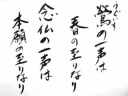 鶯の一声は
春の至りなり
念仏の一声は
本願の至りなり